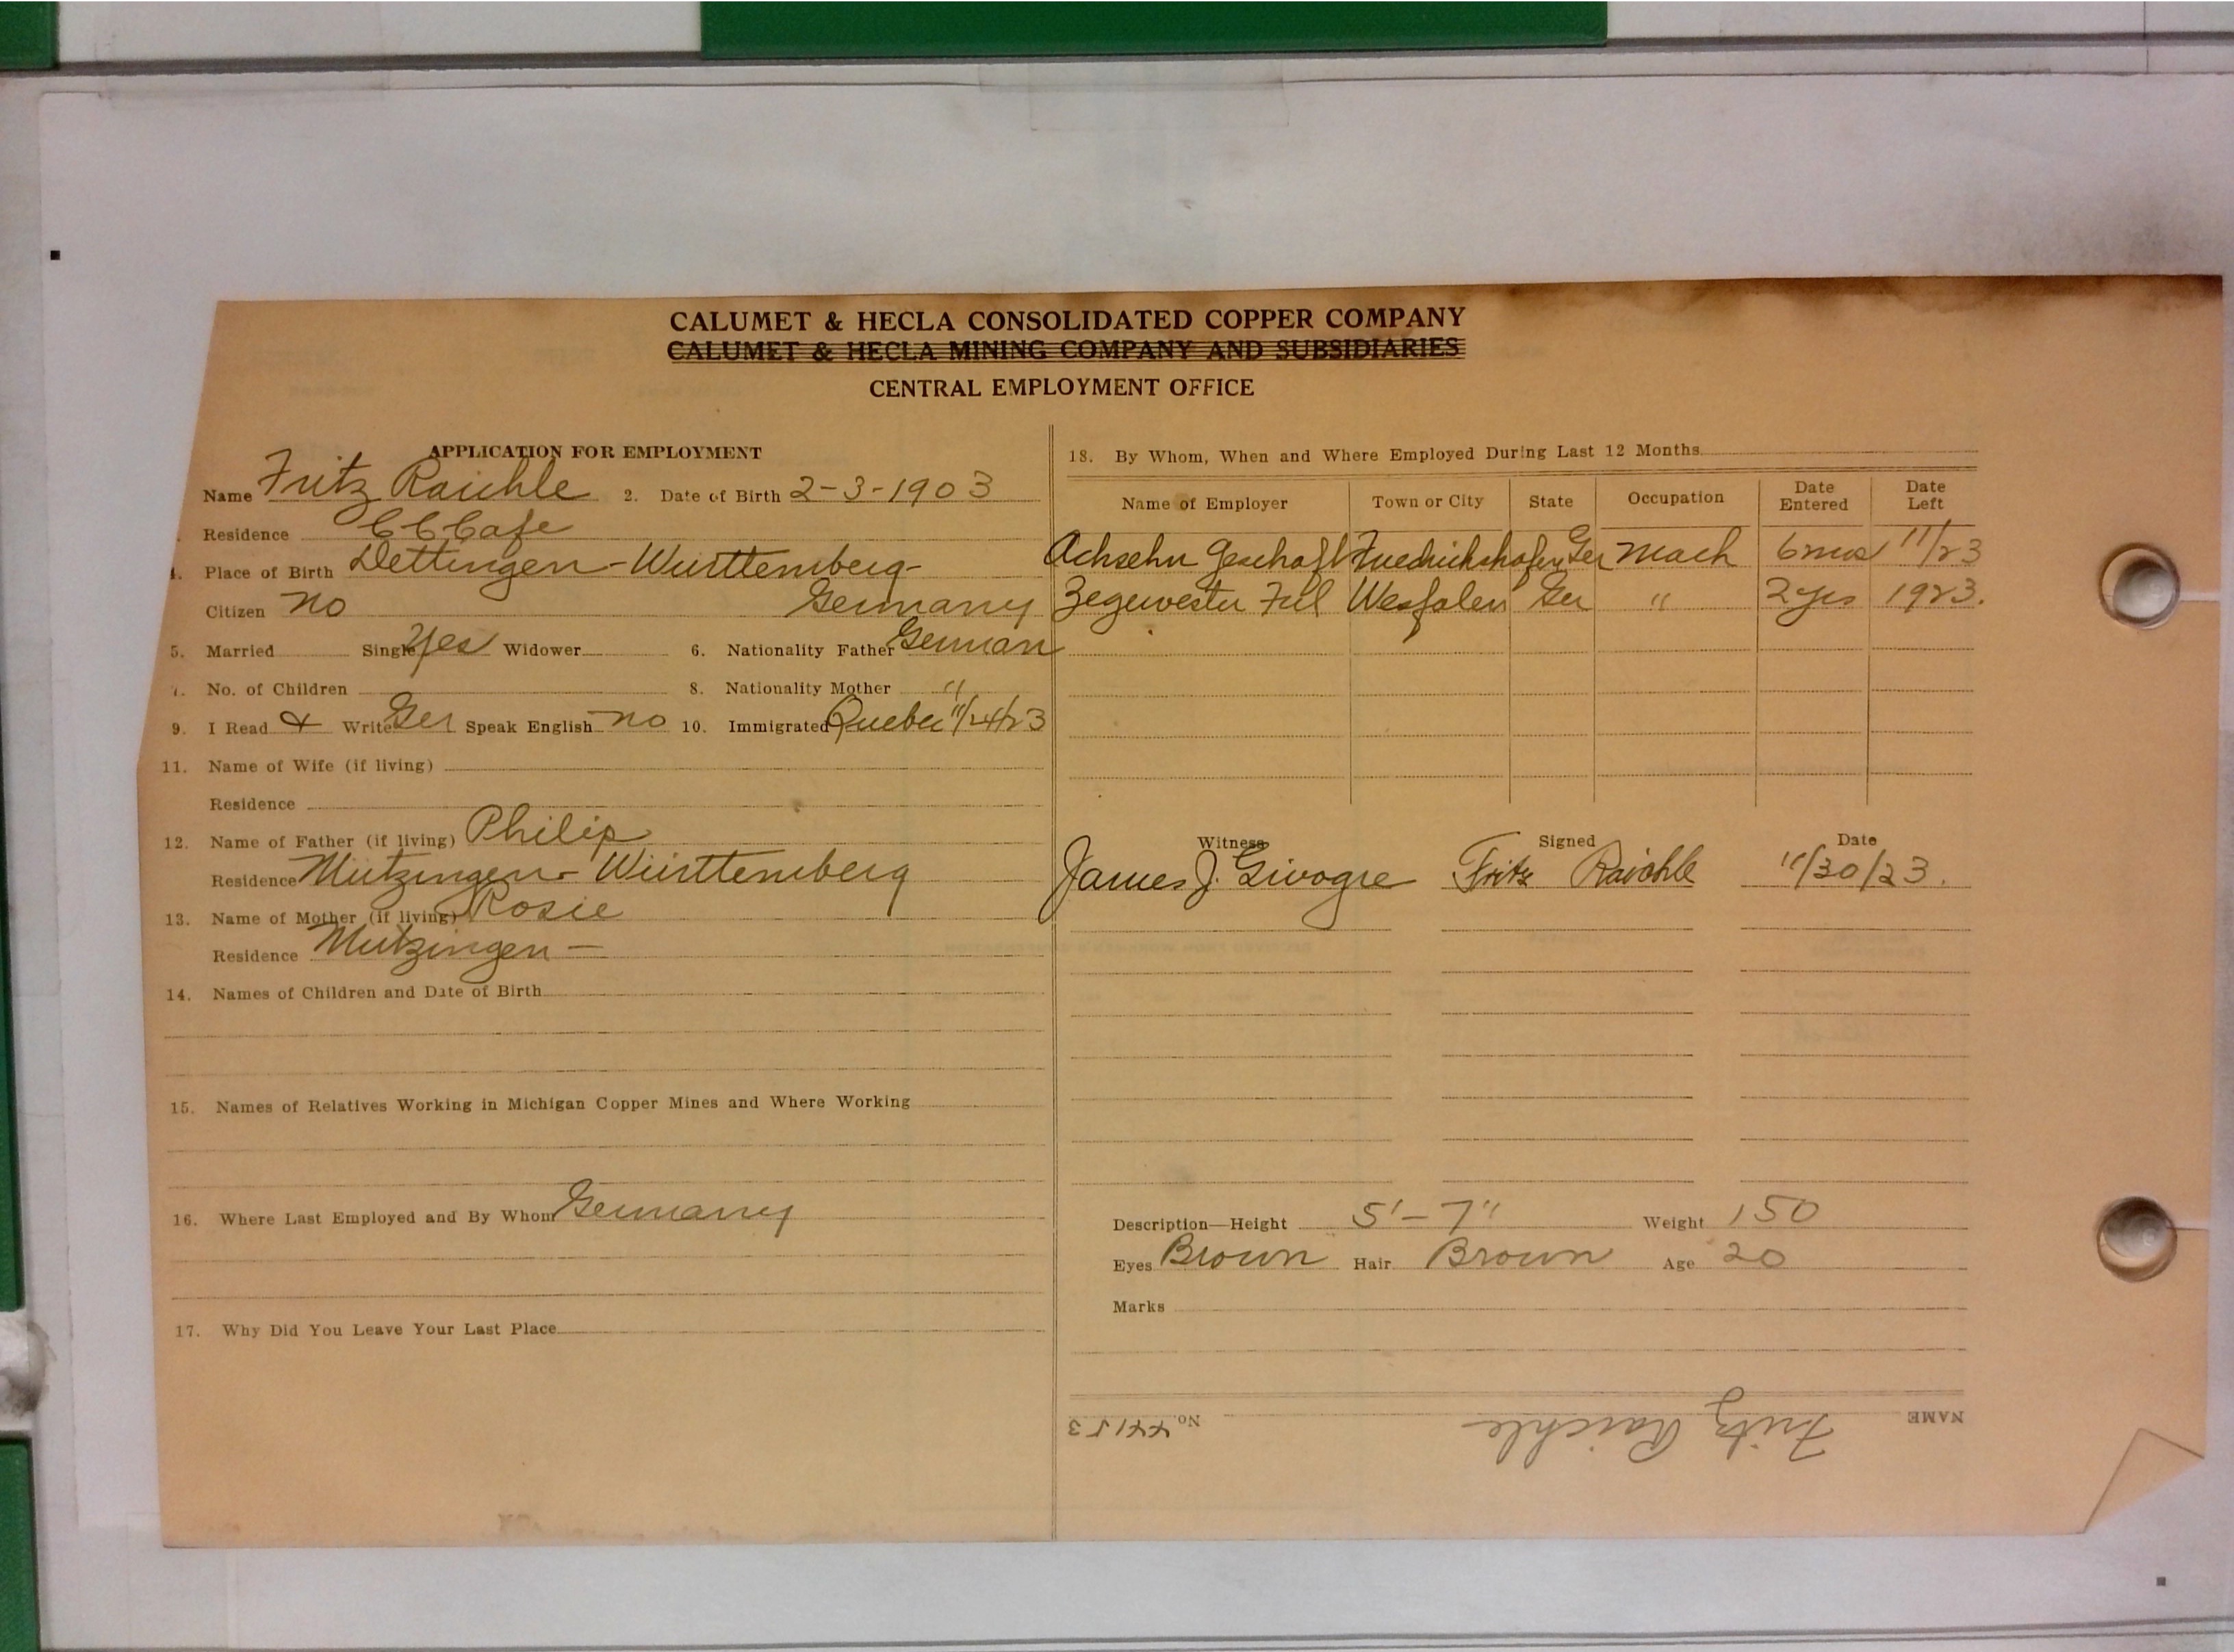 CALUMET & HECLA CONSOLIDATED COPPER COMPANY
CALUMET & HECLA MINING COMPANY AND SUBSIDIARIES
CENTRAL EMPLOYMENT OFFICE
APPLICATION FOR EMPLOYMENT
Name Fritz Raichle 2. Date of Birth 2-3-1903
Residence CC Cafe
4. Place of Birth Dettingen-Württemberg-
Citizen no Germany
5. Married Single Yes Widower 6. Nationality Father German
7. No. of Children 8. Nationality Mother "
9. I Read & Write Ger Speak English no 10. Immigrated Quebec 11/24/23
11. Name of Wife (if living)
Residence
12. Name of Father (if living) Philip
Residence Württemberg
13. Name of Mother (if living) Rosie
Residence
14. Names of Children and Date of Birth
15. Names of Relatives Working in Michigan Copper Mines and Where Working
16. Where Last Employed and By Whom Germany
17. Why Did You Leave Your Last Place
18. By Whom, When and Where Employed During Last 12 Months
Name of Employer Town or City State Occupation Date Entered Date Left
Geschaft Friedrickshafen Ger Mach 6 mos 11/23
Westfalen Ger " 2 yrs 1923.
Witness Signed Date
James J. Fritz Raichle 11/30/23.
Description—Height 5'-7" Weight 150
Eyes Brown Hair Brown Age 20
Marks
NAME Fritz Raichle No. 44153